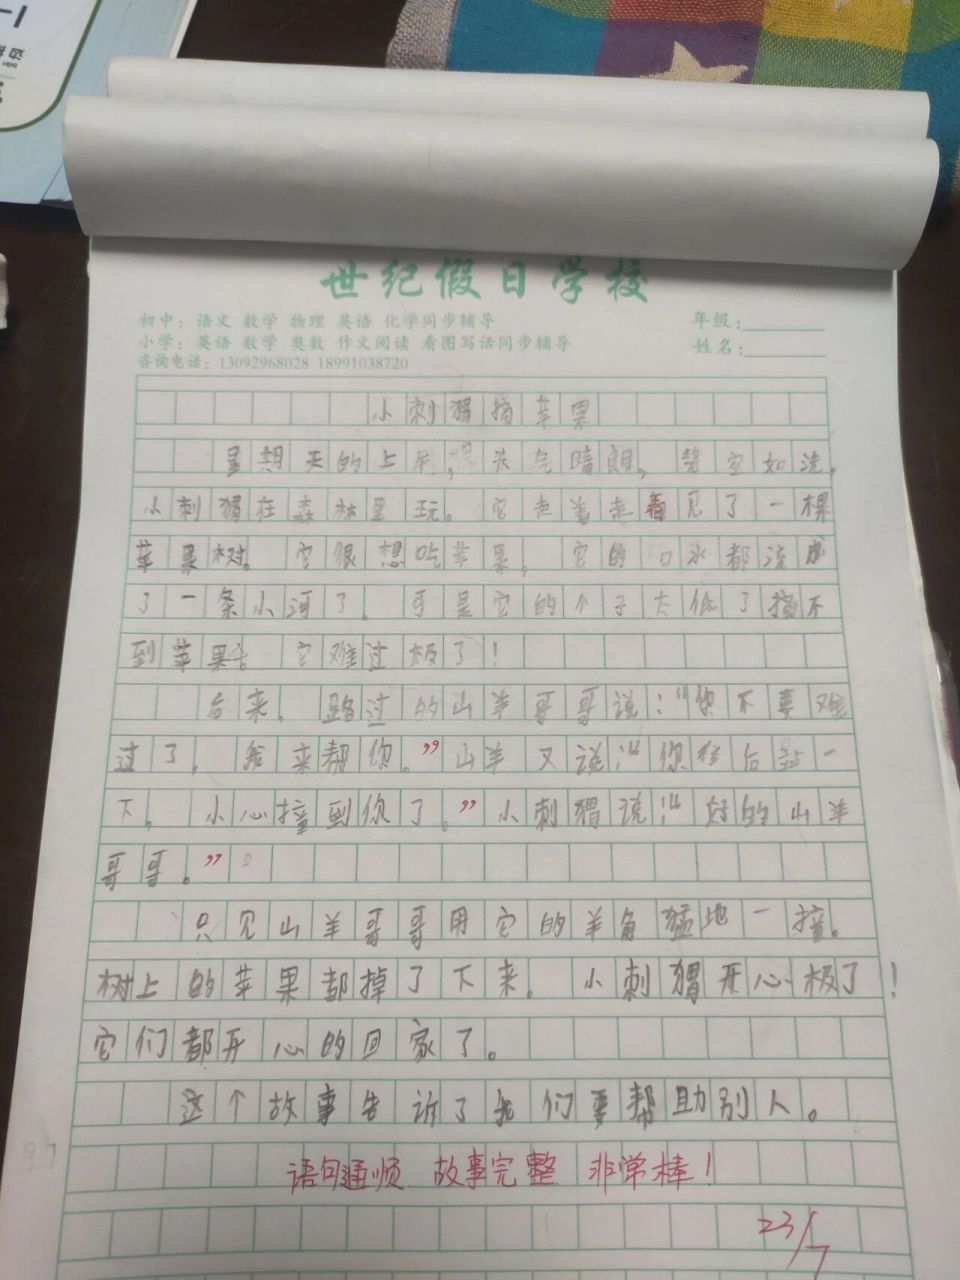 世纪假日学校
初中：语文 数学 物理 英语 化学同步辅导
年级：
小学：英语 数学 奥数 作文阅读 看图写话同步辅导
姓名：
咨询电话：13092968028 18991038720
小刺猬摘苹果
星期天的上午，天气晴朗，碧空如洗，
小刺猬在森林里玩。它走着走看见了一棵
苹果树。它很想吃苹果，它的口水都流成
了一条小河了。可是它的个子太低了摘不
到苹果。它难过极了！
后来，路过的山羊哥哥说：“你不要难
过了，我来帮你。”山羊又说：“你往后站一
下，小心撞到你了。”小刺猬说：“好的山羊
哥哥。”
只见山羊哥哥用它的羊角猛地一撞。
树上的苹果都掉了下来。小刺猬开心极了！
它们都开心的回家了。
这个故事告诉了我们要帮助别人。
语句通顺 故事完整 非常棒！
23/7